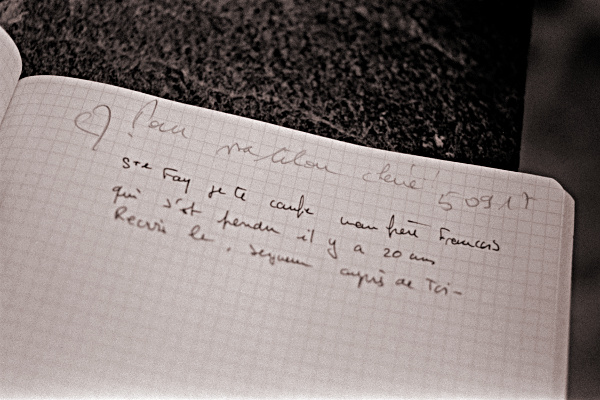 ♡ Pour ma tilou chérie 5 09 17
Ste Foy je te confie mon frère Francois
qui s'est pendu il y a 20 ans
Recois le, Seigneur auprès de Toi-